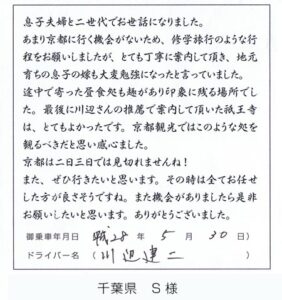 息子夫婦と二世代でお世話になりました。
あまり京都に行く機会がないため、修学旅行のような行
程をお願いしましたが、とても丁寧に案内して頂き、地元
育ちの息子の嫁も大変勉強になったと言っていました。
途中で寄った昼食処も趣があり印象に残る場所でし
た。最後に川辺さんの推薦で案内して頂いた祇王寺
は、とてもよかったです。京都観光ではこのような処を
観るべきだと思い感心しました。
京都は二日三日では見切れませんね!
また、ぜひ行きたいと思います。その時は全てお任せ
した方が良さそうですね。また機会がありましたら是非
お願いしたいと思います。ありがとうございました。
御乗車年月日 平成28年 5月 30日)
ドライバー名 (川辺達二)
千葉県 S様